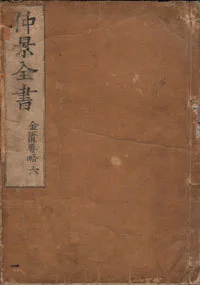 仲景全書
金匱要略 六